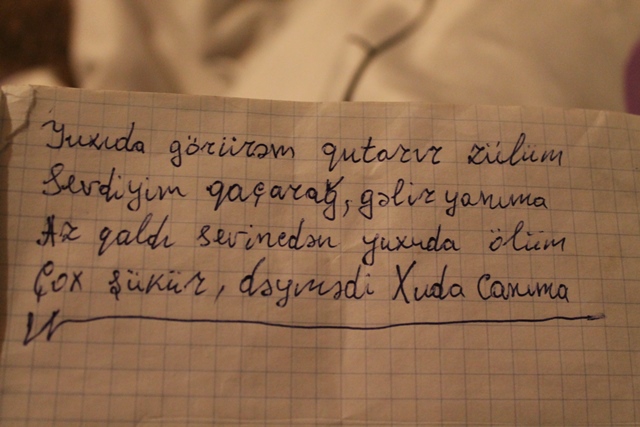 Yuxıda görürəm qutarır zülüm
Sevdiyim qaçarağ, gəlir yanıma
Az qaldı sevincdən yuxıda ölüm
Çox şükür, dəymədi Xuda Canıma